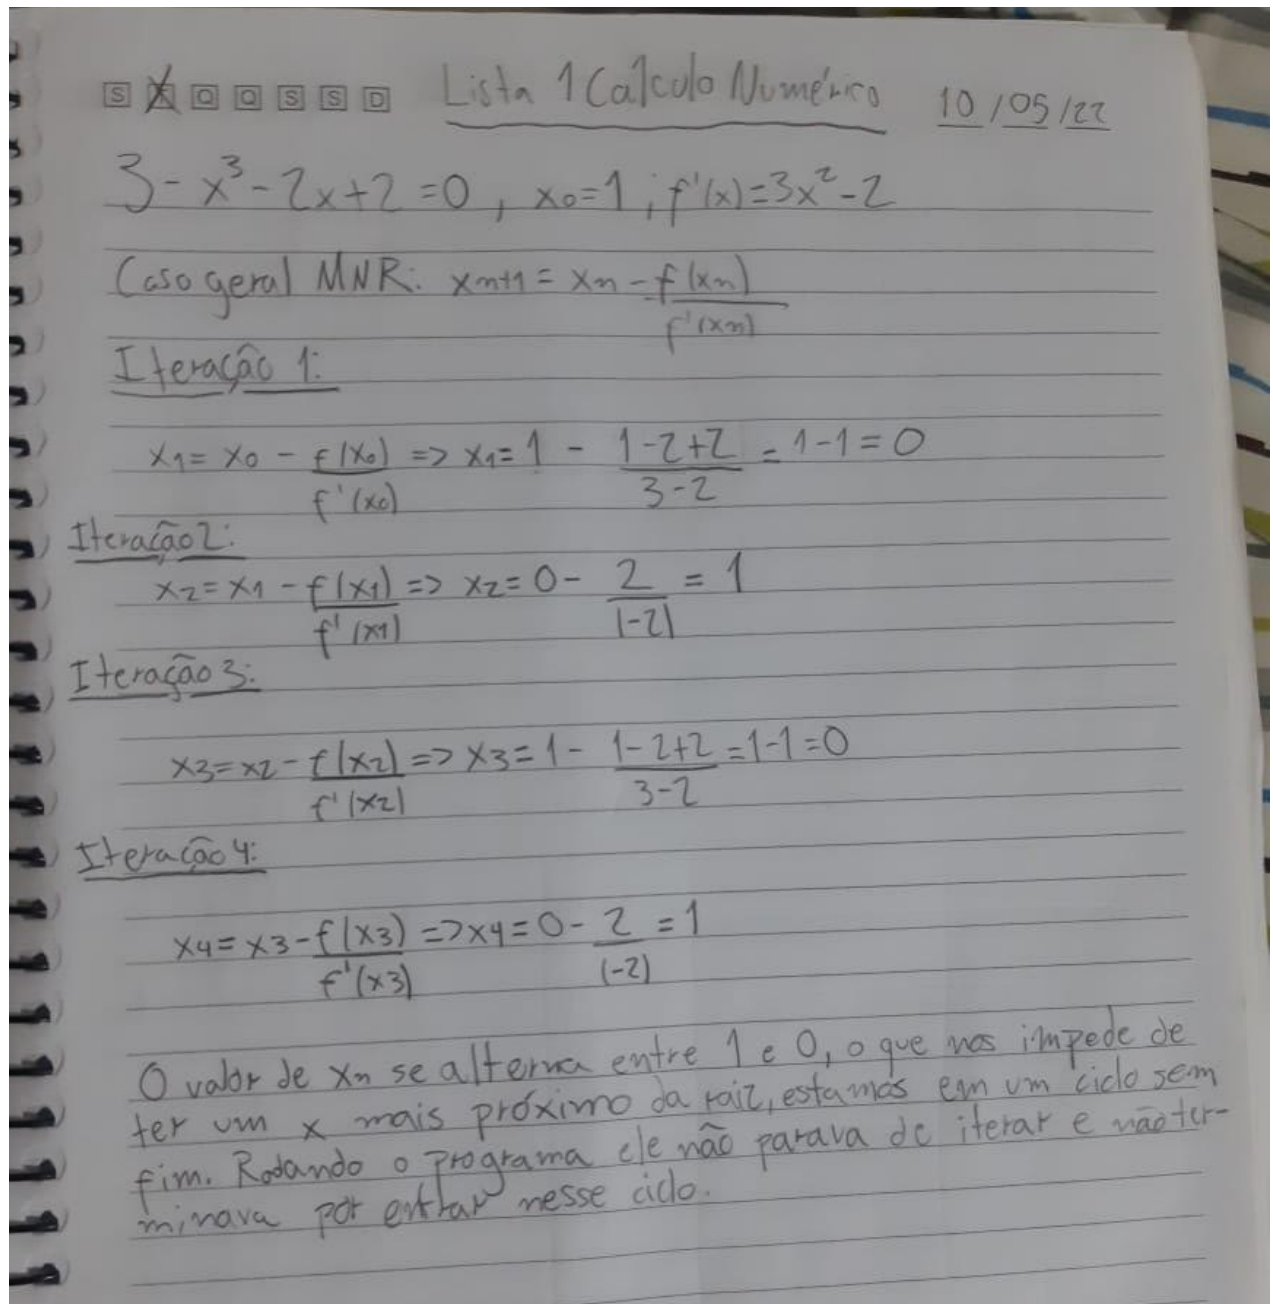 S T Q Q S S D Lista 1 Calculo Numérico 10/05/22
3 - x³ - 2x + 2 = 0 , x0 = 1 ; f'(x) = 3x² - 2
Caso geral MNR: xn+1 = xn - f(xn)/f'(xn)
Iteração 1:
x1 = x0 - f(x0)/f'(x0) => x1 = 1 - (1-2+2)/(3-2) = 1-1 = 0
Iteração 2:
x2 = x1 - f(x1)/f'(x1) => x2 = 0 - 2/(-2) = 1
Iteração 3:
x3 = x2 - f(x2)/f'(x2) => x3 = 1 - (1-2+2)/(3-2) = 1-1 = 0
Iteração 4:
x4 = x3 - f(x3)/f'(x3) => x4 = 0 - 2/(-2) = 1
O valor de xn se alterna entre 1 e 0, o que nos impede de
ter um x mais próximo da raiz, estamos em um ciclo sem
fim. Rodando o programa ele não parava de iterar e não ter-
minava por entrar nesse ciclo.